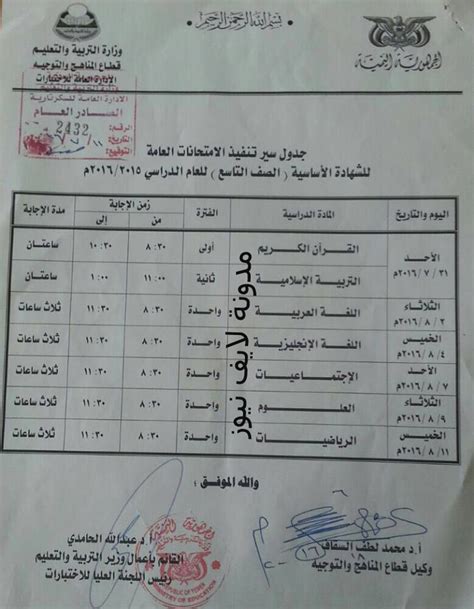 بسم الله الرحمن الرحيم
الجمهورية اليمنية
وزارة التربية والتعليم
قطاع المناهج والتوجيه
الادارة العامة للاختبارات
الادارة العامة للسكرتارية
الصادر العام
الرقم: 2432
التاريخ:
التوقيع:
جدول سير تنفيذ الامتحانات العامة
للشهادة الأساسية (الصف التاسع) للعام الدراسي ٢٠١٦/٢٠١٥م
اليوم والتاريخ المادة الدراسية الفترة زمن الإجابة مدة الإجابة
من إلى
الأحد ٢٠١٦/٧/٣١م القرآن الكريم أولى ٨:٣٠ ١٠:٣٠ ساعتان
التربية الإسلامية ثانية ١١:٠٠ ١:٠٠ ساعتان
الثلاثاء ٢٠١٦/٨/٢م اللغة العربية واحدة ٨:٣٠ ١١:٣٠ ثلاث ساعات
الخميس ٢٠١٦/٨/٤م اللغة الإنجليزية واحدة ٨:٣٠ ١١:٣٠ ثلاث ساعات
الأحد ٢٠١٦/٨/٧م الإجتماعيات واحدة ٨:٣٠ ١١:٣٠ ثلاث ساعات
الثلاثاء ٢٠١٦/٨/٩م العلوم واحدة ٨:٣٠ ١١:٣٠ ثلاث ساعات
الخميس ٢٠١٦/٨/١١م الرياضيات واحدة ٨:٣٠ ١١:٣٠ ثلاث ساعات
مدونة لايف نيوز
والله الموفق؛
أ.د محمد لطف السقاف
وكيل قطاع المناهج والتوجية
أ.د. عبدالله الحامدي
القائم بأعمال وزير التربية والتعليم
رئيس اللجنة العليا للاختبارات
MINISTRY OF EDUCATION